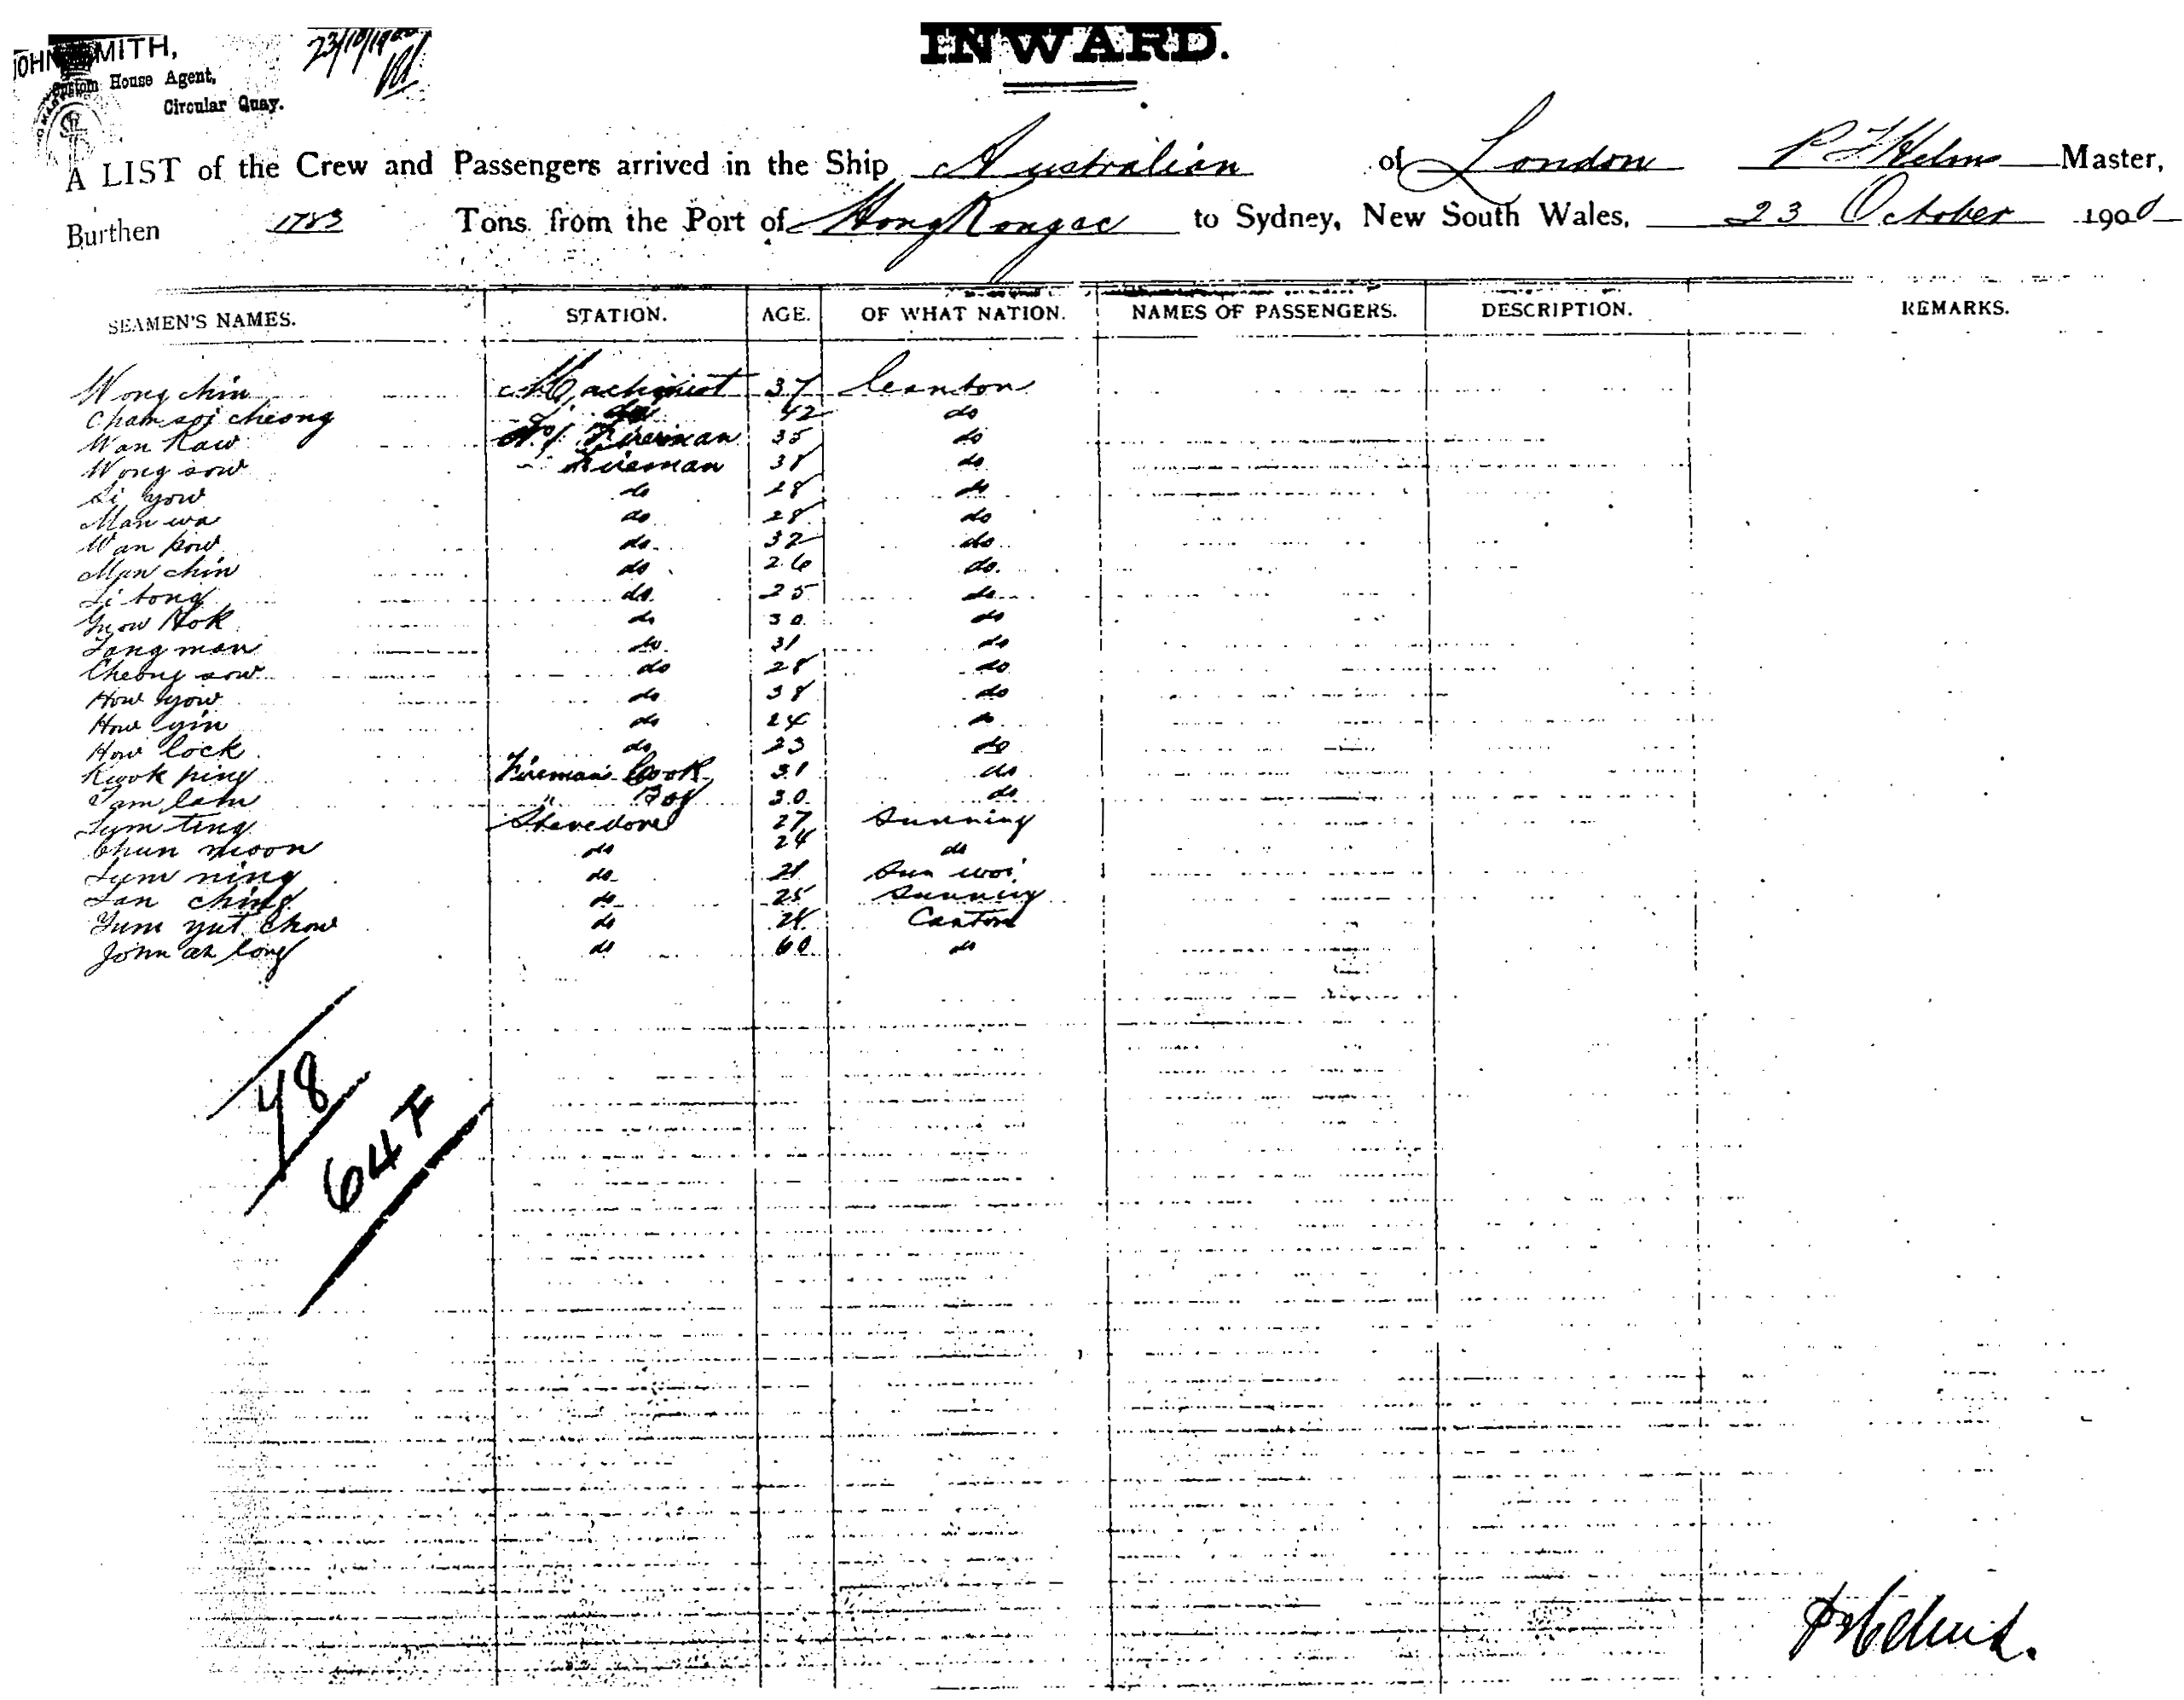 JOHN SMITH,
Custom House Agent,
Circular Quay.
23/10/1900
INWARD.
A LIST of the Crew and Passengers arrived in the Ship Australian of London P T Helms Master,
Burthen 1783 Tons from the Port of Hong Kong &c to Sydney, New South Wales, 23 October 1900
SEAMEN'S NAMES. STATION. AGE. OF WHAT NATION. NAMES OF PASSENGERS. DESCRIPTION. REMARKS.
Wong chin Machinist 37 Canton
Cham soi cheong do 42 do
Wan Kaw No 1 Fireman 35 do
Wong sow Fireman 38 do
Li yow do 28 do
Man wa do 28 do
Wan kow do 32 do
Man chin do 26 do
Li tong do 25 do
Hok do 30 do
Tang man do 31 do
Cheong sow do 28 do
How yow do 38 do
How yin do 24 do
How lock do 23 do
Kwok ping Fireman's Cook 31 do
Tam lam " Boy 30 do
Lum Ting Stevedore 27 Sunning
Chun moon do 24 do
Lum ning do 21 Sun woi
Lan ching do 25 Sunning
Yum yut Chow do 24 Canton
John ah long do 60 do
48
64